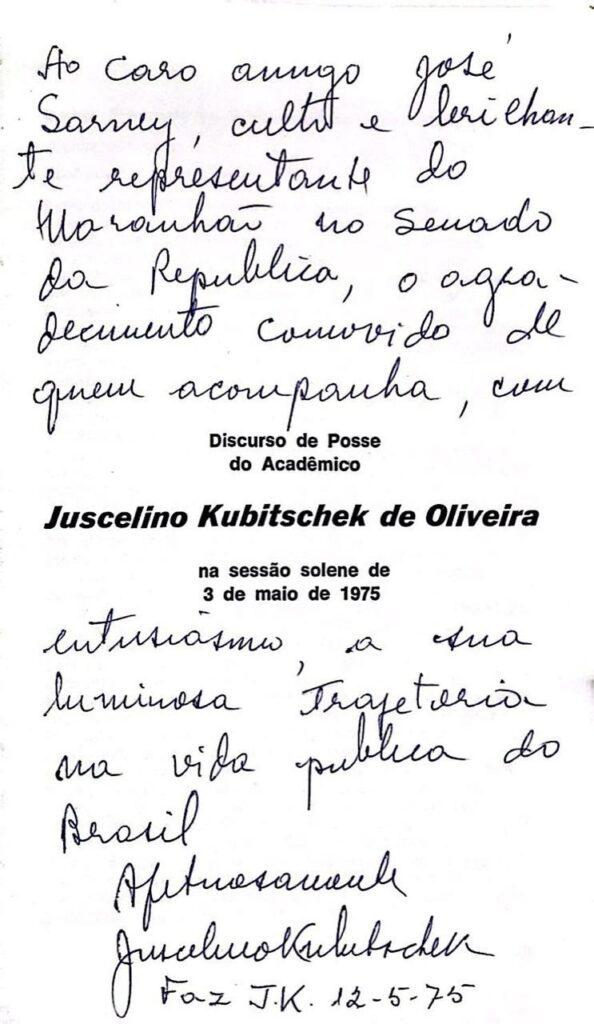 Ao caro amigo José
Sarney, culto e brilhan-
te representante do
Maranhão no Senado
da Republica, o agra-
decimento comovido de
quem acompanha, com
Discurso de Posse
do Acadêmico
Juscelino Kubitschek de Oliveira
na sessão solene de
3 de maio de 1975
entusiásmo, a sua
luminosa Trajetoria
na vida publica do
Brasil
Afetuosamente
Juscelino Kubitschek
Faz J.K. 12-5-75